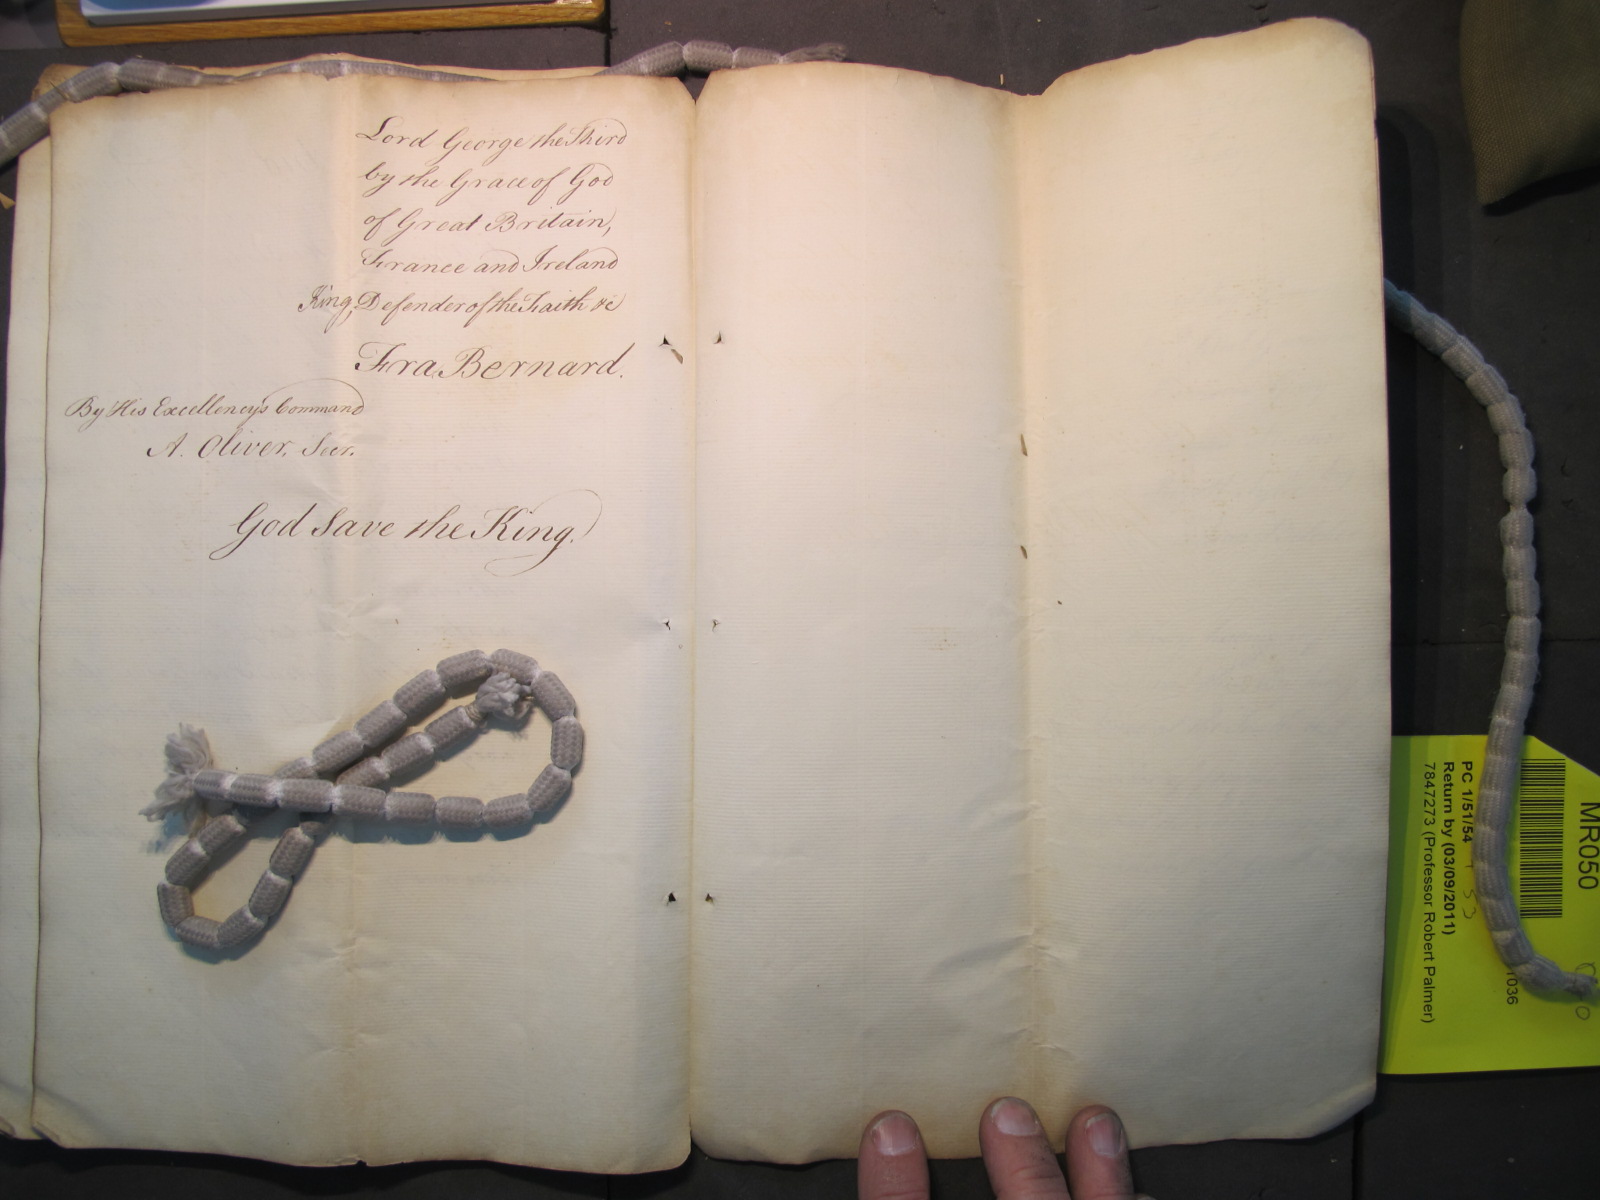 Lord George the Third
by the Grace of God
of Great Britain,
France and Ireland
King, Defender of the Faith &c
Fra Bernard.
By His Excellencys Command
A. Oliver, Secr.
God Save the King.
MR050
PC 1/51/54
Return by (03/09/2011)
7847273 (Professor Robert Palmer)